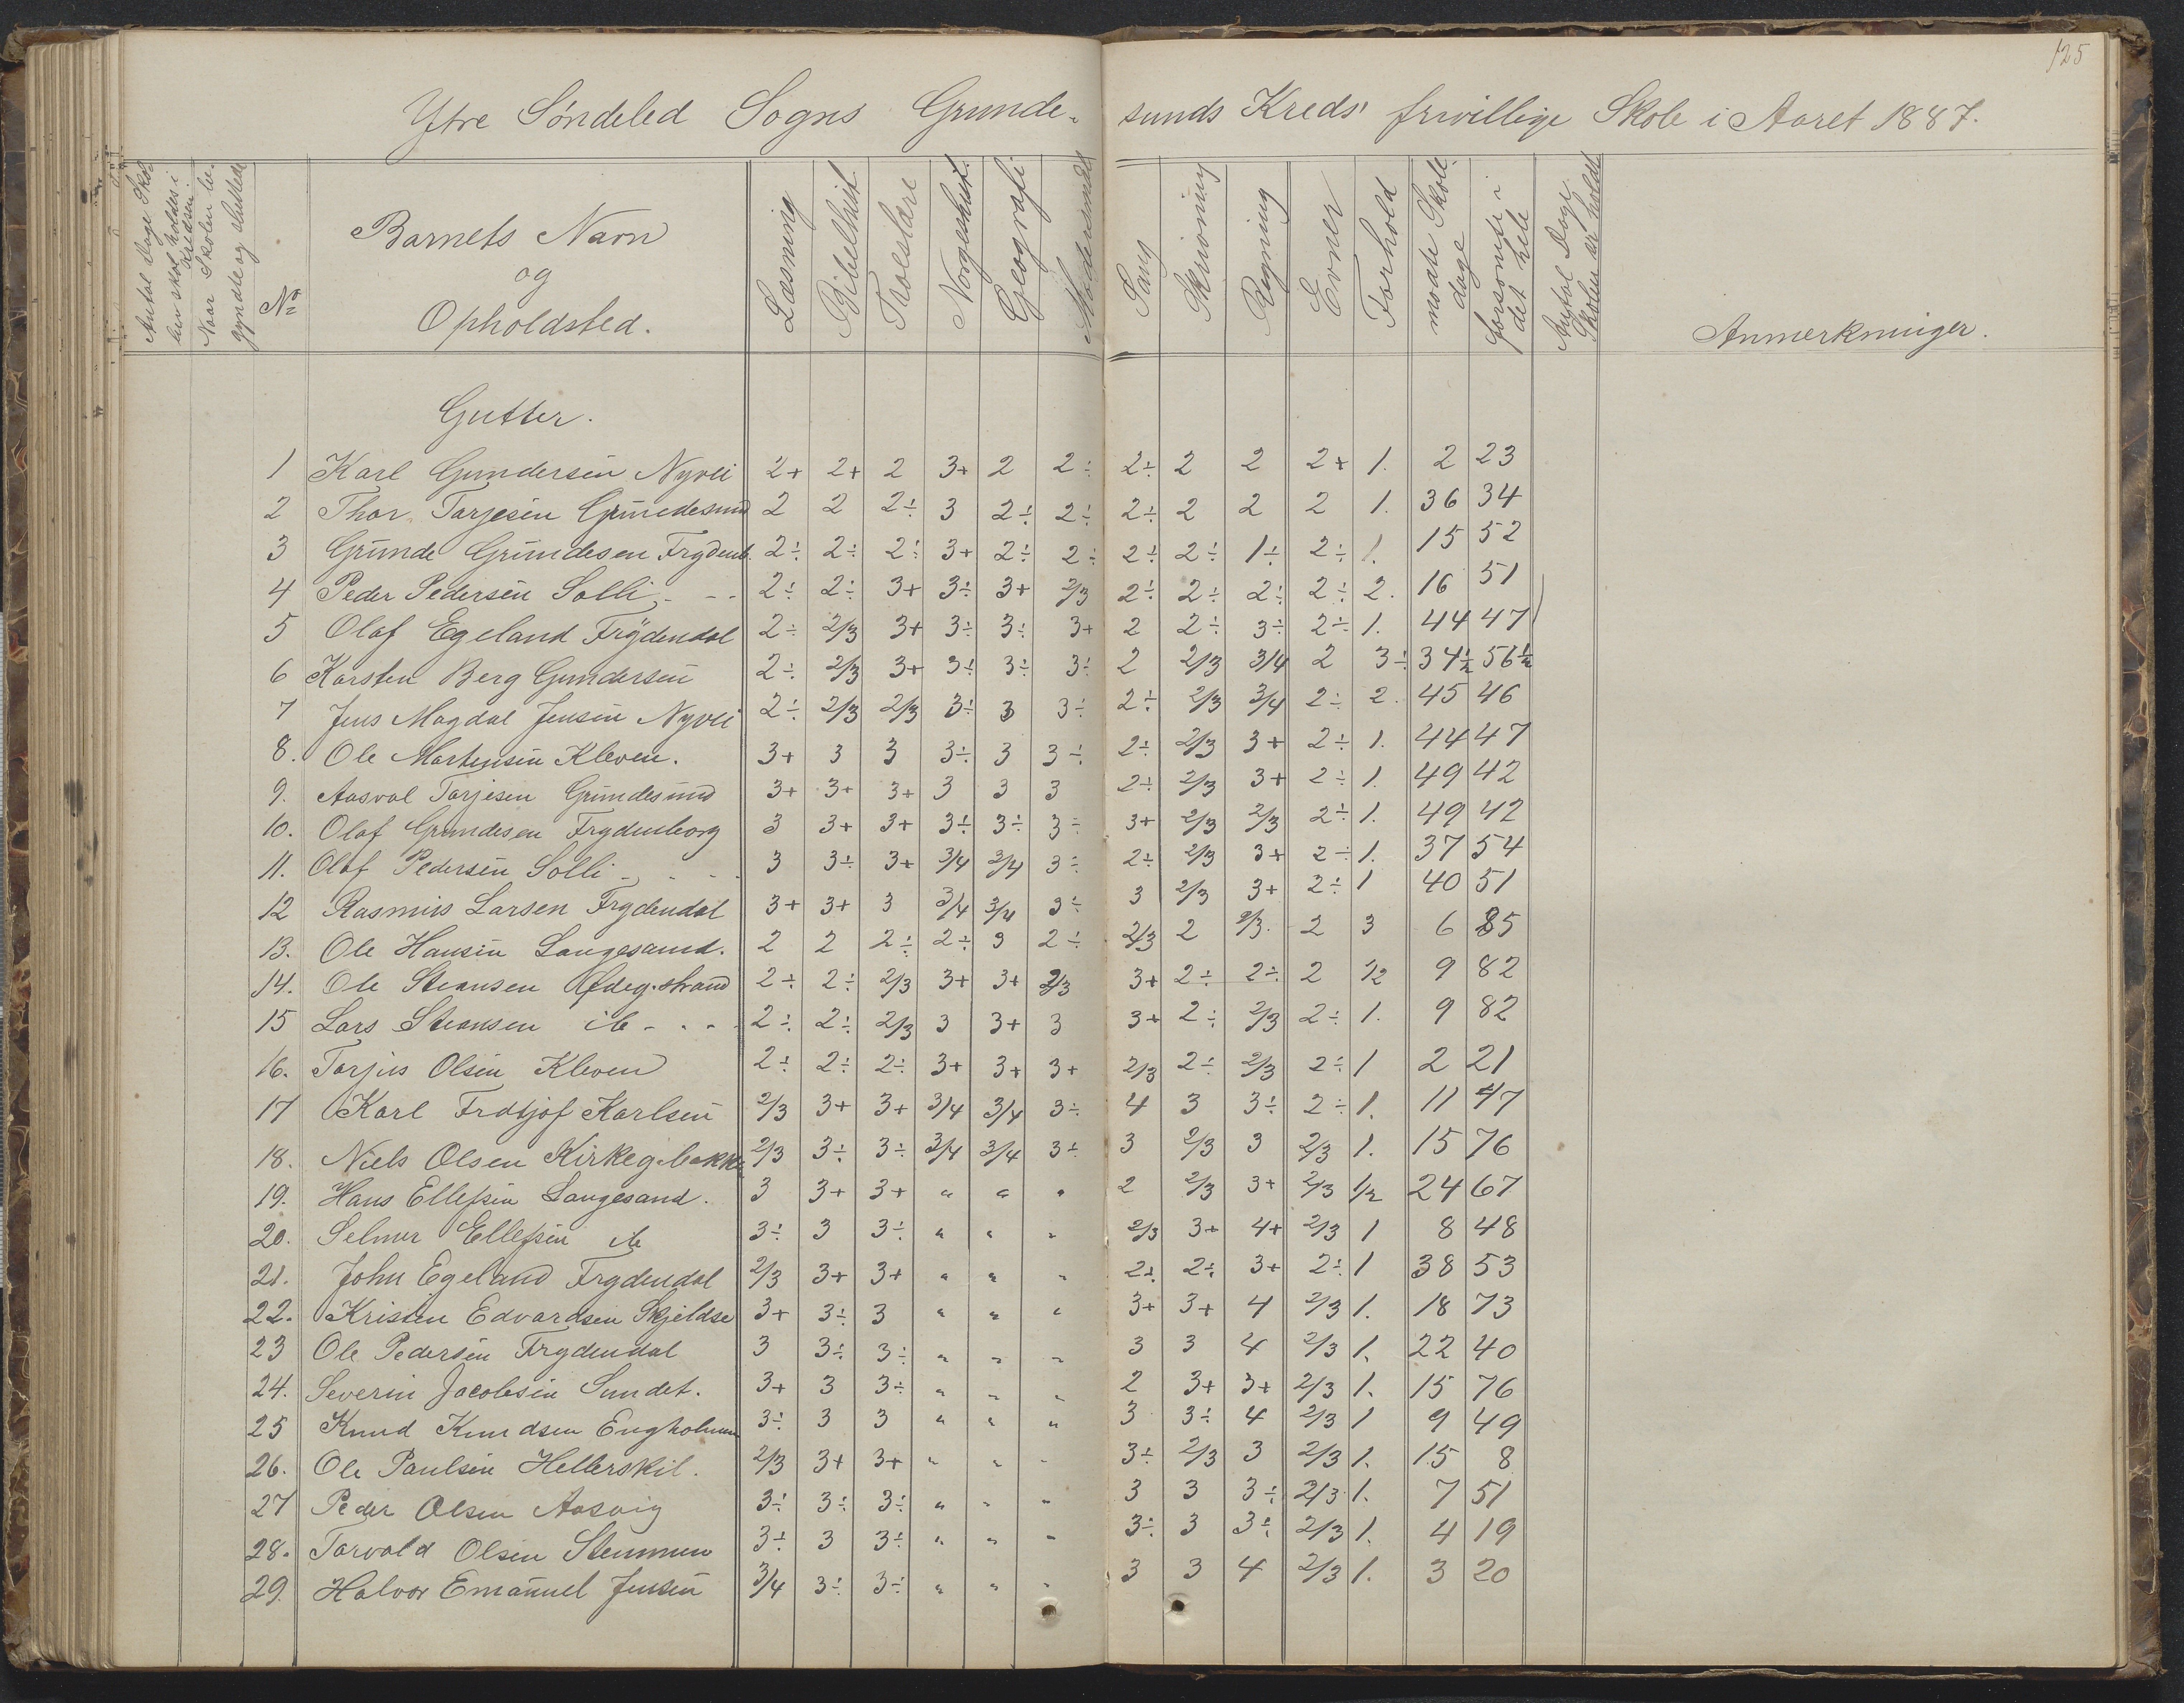 125
Ytre Søndeled Sogns Grunde-sunds Kreds' frivillige Skole i Aaret 1887.
Antal Dage Sko-
len skal holdes i
Kredsen.
Naar Skolen be-
gyndte og sluttede
No
Barnets Navn
og
Opholdsted.
Læsning
Bibelhist
Troeslære
Norgeshist.
Geografi
Modersmaal
Sang
Skrivning
Regning
Evner
Forhold
mødte Skole-
dage
forsømte i
det hele
Antal Dage
Skolen er holdt
Anmerkninger.
Gutter.
1 Karl Gundersen Nyvei 2+ 2+ 2 3+ 2 2÷ 2÷ 2 2 2+ 1. 2 23
2 Thor Tarjesen Grundesund 2 2 2÷ 3 2÷ 2÷ 2÷ 2 2 2 1. 36 34
3 Grunde Grundesen Frydenb. 2÷ 2÷ 2÷ 3+ 2÷ 2÷ 2÷ 2÷ 1÷ 2÷ 1. 15 52
4 Peder Pedersen Solli - - - 2÷ 2÷ 3+ 3÷ 3+ 2/3 2÷ 2÷ 2÷ 2÷ 2. 16 51
5 Olaf Egeland Frydendal 2÷ 2/3 3+ 3÷ 3÷ 3+ 2 2÷ 3÷ 2÷ 1. 44 47
6 Karsten Berg Gundersen 2÷ 2/3 3+ 3÷ 3÷ 3÷ 2 2/3 3/4 2 3÷ 34½ 56½
7 Jens Magdal Jensen Nyvei 2÷ 2/3 2/3 3÷ 3 3÷ 2÷ 2/3 3/4 2÷ 2. 45 46
8. Ole Martensen Kleven. 3+ 3 3 3÷ 3 3÷ 2÷ 2/3 3+ 2÷ 1. 44 47
9. Aasval Tarjesen Grundesund 3+ 3+ 3+ 3 3 3 2÷ 2/3 3+ 2÷ 1. 49 42
10. Olaf Grundesen Frydenborg 3 3+ 3+ 3÷ 3÷ 3÷ 3+ 2/3 2/3 2÷ 1. 49 42
11. Olaf Pedersen Solli - - - 3 3÷ 3+ 3/4 3/4 3÷ 2÷ 2/3 3+ 2÷ 1. 37 54
12 Rasmus Larsen Frydendal 3+ 3+ 3 3/4 3/4 3÷ 3 2/3 3+ 2÷ 1 40 51
13. Ole Hansen Langesand. 2 2 2÷ 2÷ 3 2÷ 2/3 2 2/3. 2 3 6 85
14. Ole Steansen Ødeg.strand 2÷ 2÷ 2/3 3+ 3+ 2/3 3+ 2÷ 2÷ 2 1/2 9 82
15 Lars Steansen ib - - - 2÷ 2÷ 2/3 3 3+ 3 3+ 2÷ 2/3 2÷ 1. 9 82
16. Tarjus Olsen Kleven 2÷ 2÷ 2÷ 3+ 3+ 3+ 2/3 2÷ 2/3 2÷ 1 2 21
17 Karl Frdtjof Karlsen 2/3 3+ 3+ 3/4 3/4 3÷ 4 3 3÷ 2÷ 1. 11 47
18. Niels Olsen Kirkeg.bakke 2/3 3÷ 3÷ 3/4 3/4 3÷ 3 2/3 3 2/3 1. 15 76
19. Hans Ellefsen Langesand. 3 3+ 3+ " " " 2 2/3 3+ 2/3 1/2 24 67
20. Selmer Ellefsen ib 3÷ 3 3÷ " " " 2/3 3+ 4+ 2/3 1 8 48
21. John Egeland Frydendal 2/3 3+ 3+ " " " 2÷ 2÷ 3+ 2÷ 1 38 53
22. Kristen Edvardsen Skjeldsø 3+ 3÷ 3 " " " 3+ 3+ 4 2/3 1. 18 73
23 Ole Pedersen Frydendal 3 3÷ 3÷ " " " 3 3 4 2/3 1. 22 40
24. Severin Jacobsen Sundet. 3+ 3 3÷ " " " 2 3+ 3+ 2/3 1. 15 76
25 Knud Knudsen Engholmen 3÷ 3 3 " " " 3 3÷ 4 2/3 1 9 49
26. Ole Paulsen Hellerskil. 2/3 3+ 3+ " " " 3÷ 2/3 3 2/3 1. 15 8
27 Peder Olsen Aasvig 3÷ 3÷ 3÷ " " " 3 3 3÷ 2/3 1. 7 51
28. Tarvald Olsen Stemmen 3÷ 3 3÷ " " " 3÷ 3 3÷ 2/3 1. 4 19
29. Halvor Emanuel Jensen 3/4 3÷ 3÷ " " " 3 3 4 2/3 1. 3 20